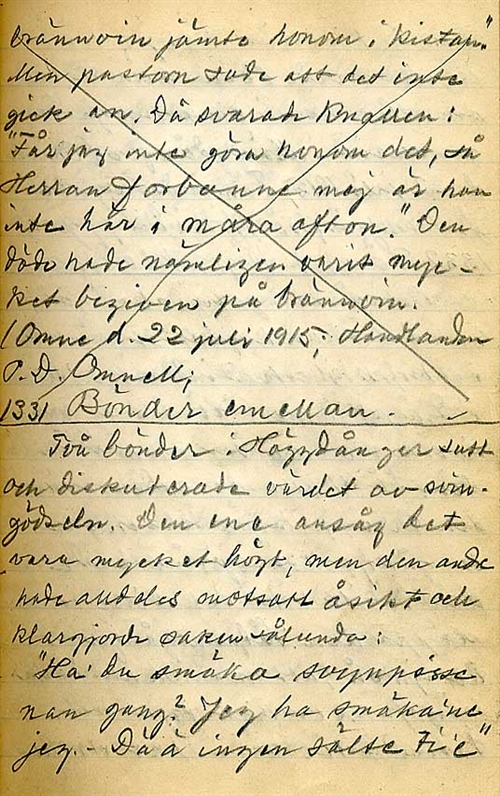 brännvin jämte honom i kistan."
Men pastorn sade att det inte
gick an. Då svarade knallen:
"Får jag inte göra honom det, så
Herran förbanne mej är han
inte här i måra afton." Den
döde hade nämligen varit myc-
ket begiven på brännvin.
(Omne d. 22 juli 1915; Handlanden
P. D. Omnell;
1331 Bönder emellan.
Två bönder i Höggdånger satt
och diskuterade värdet av svin-
gödseln. Den ene ansåg det
vara mycket högt, men den andre
hade alldeles motsatt åsikt och
klargjorde saken sålunda:
"Ha' du smaka
nan gang? Jeg ha smaka'ne
jeg. - Dä ä ingen sälte ti'e"